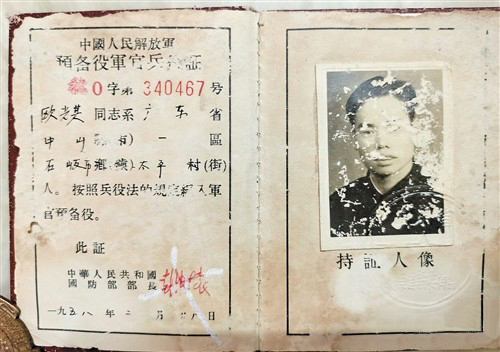 中國人民解放軍
預备役軍官兵役証
0字第 340467 号
欧 同志系广东省
中山 一區
石岐 鄉鎮太平村(街)
人。按照兵役法的規定編入軍
官預备役。
此証
中華人民共和國
國防部部長 彭德懷
一九五八年 月 八日
持証人像